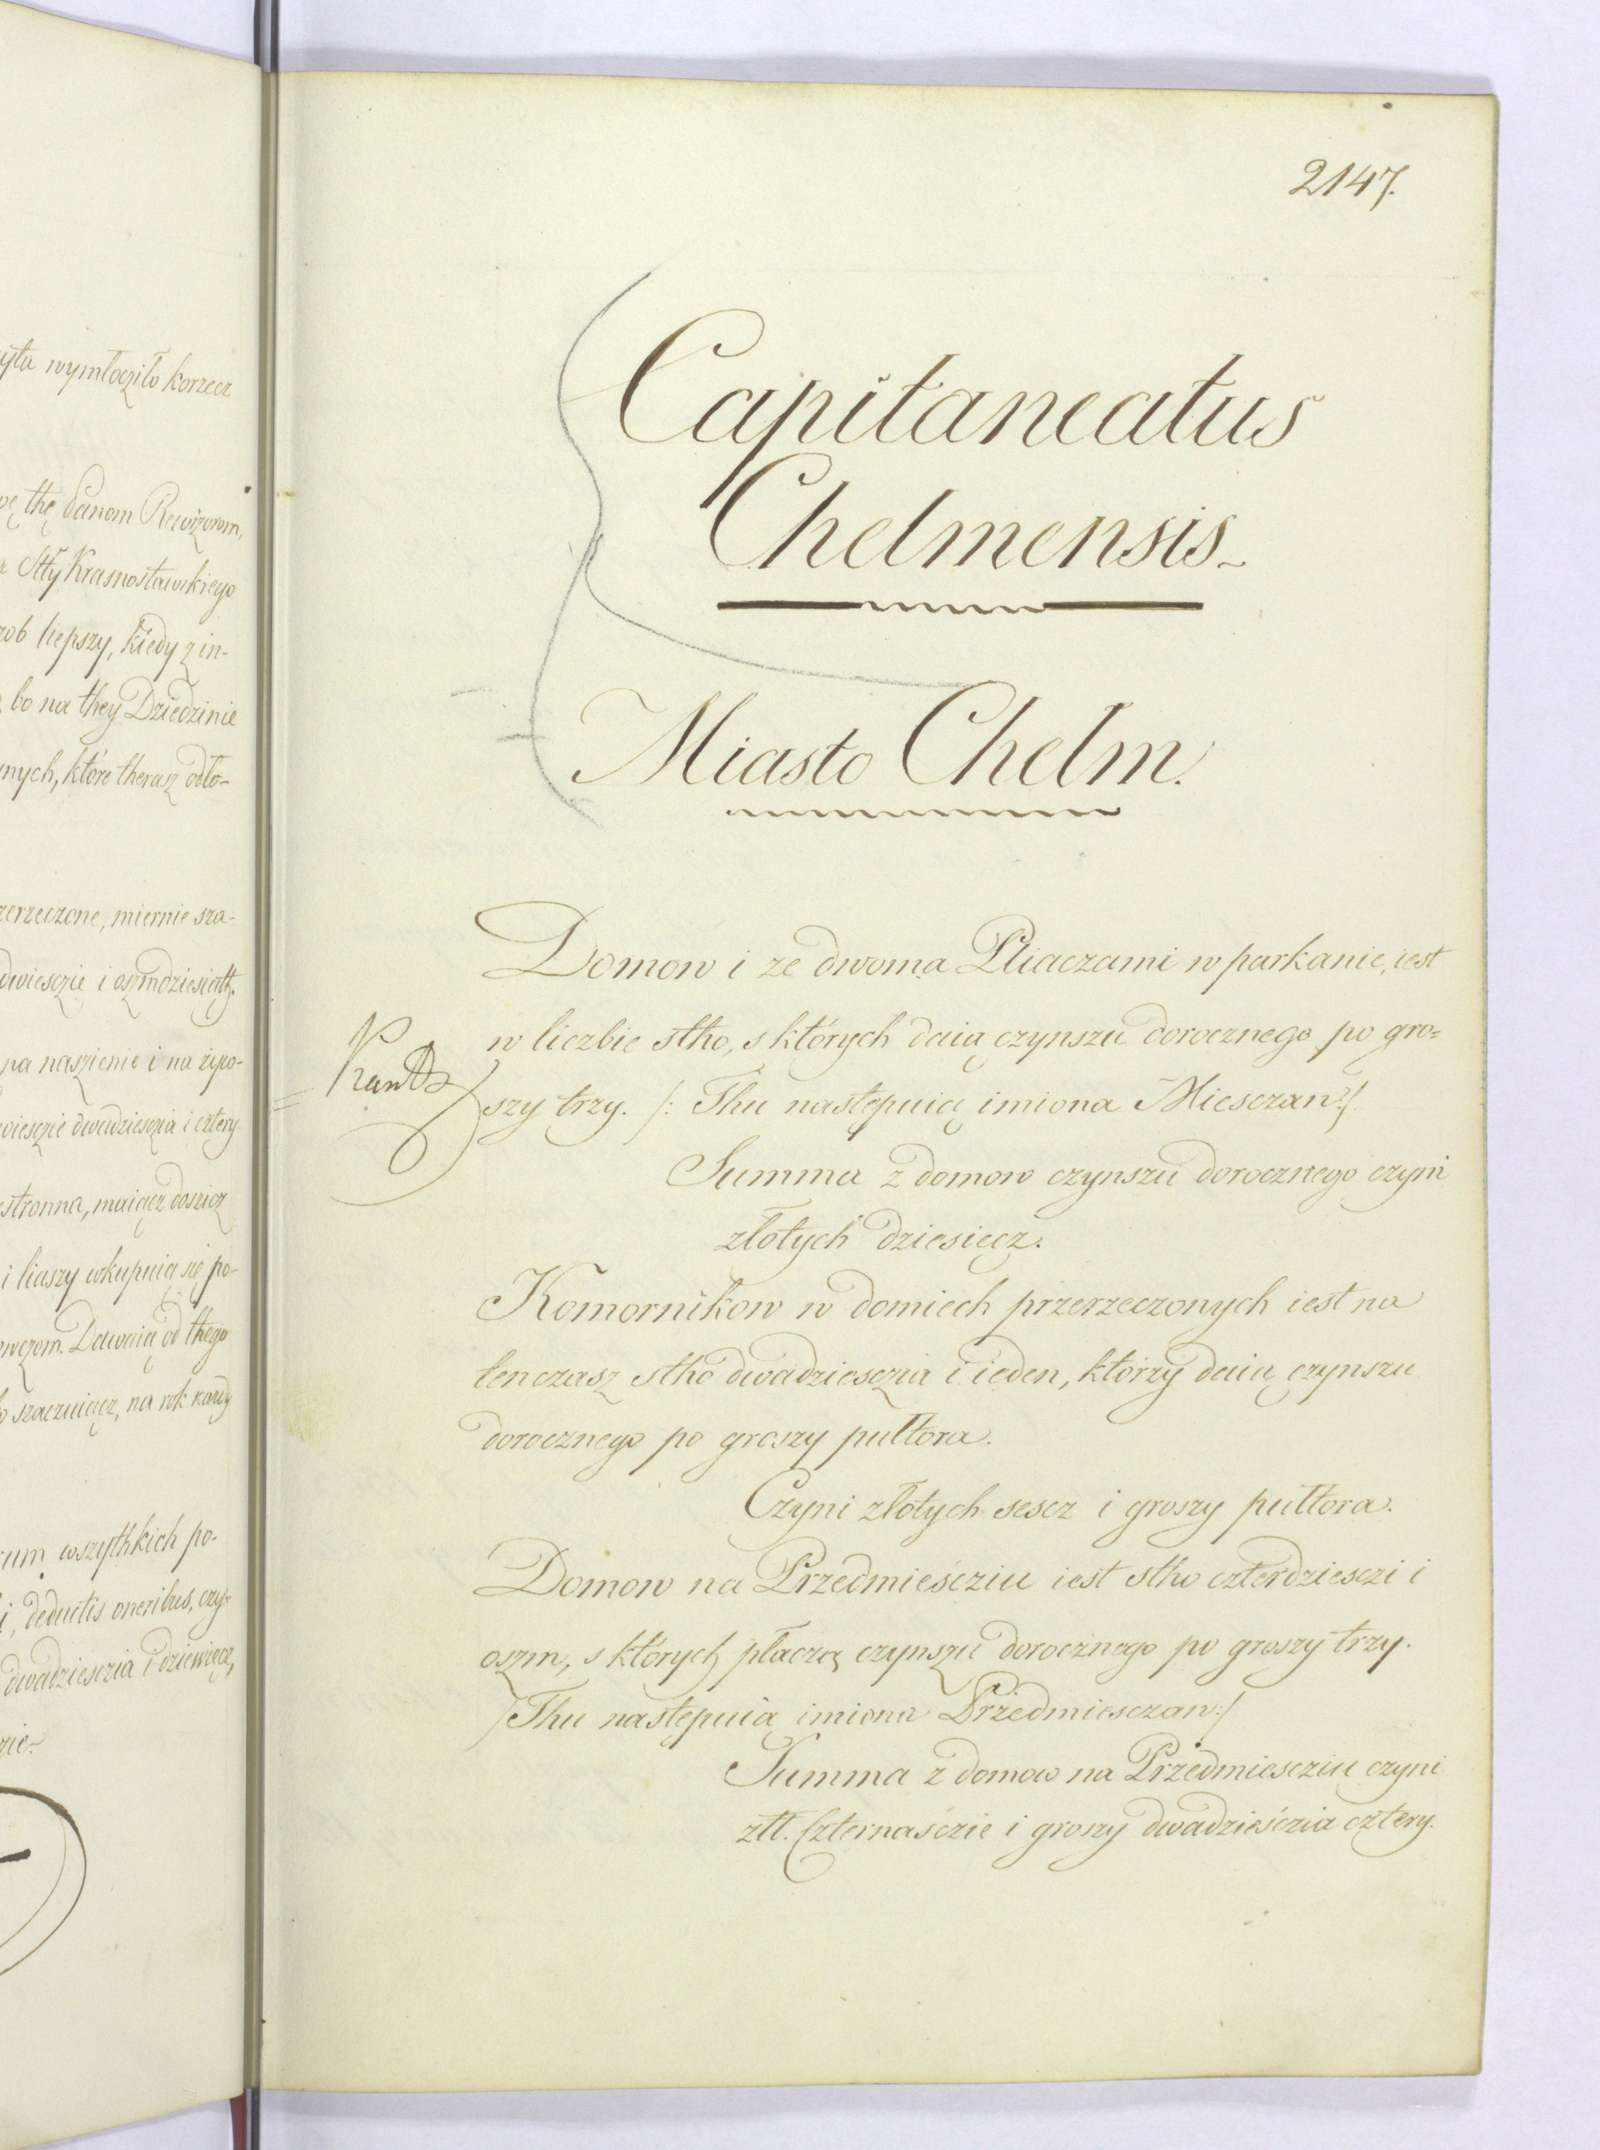 yta wymłoczilo korzecz
thę Panom Rewizorom,
Stty Krasnostawskiego
zob liepszy, kiedy z in-
bo na they Dziedzinie
nych, które therasz odło-
zerzeczone, miernie sza-
dwieszie i oszmdziesiąth.
na naszienie i na żipo-
wieszie dwadzieszia i cztery
stronna, maiącz doszicz
i liaszy wkupuią się po-
wczom. Dawaią od thego
szaczuiącz, na rok każdy
um wszythkich po-
i, deductis oneribus, czy-
dwadziesczia i dziewięcz,
zie.
2147.
Capitaneatus
Chelmensis
Miasto Chelm.
Domow i ze dwoma Pliaczami w parkanie, iest
w liczbie stho, s których daią czynszu dorocznego po gro=
szy trzy. /: Thu następuią imiona Miesczan :/.
Summa z domow czynszu dorocznego czyni
złotych dziesięcz.
Komornikow w domiech przerzeczonych iest na
tenczasz stho dwadziesczia i ieden, którzy daią czynszu
dorocznego po groszy pułtora.
Czyni złotych sescz i groszy pułtora.
Domow na Przedmiesciu iest stho czterdziesczi i
oszm, s których płaczą czynszu dorocznego po groszy trzy.
/Thu następuią imiona Przedmiesczan :/
Summa z domow na Przedmiescziu czyni
złł. Czternaśczie i groszy dwadzieśczia cztery.